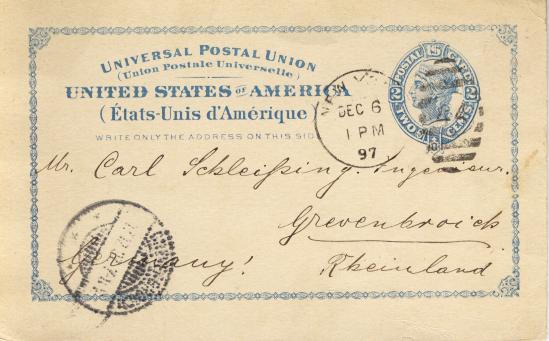 UNIVERSAL POSTAL UNION
(Union Postale Universelle)
UNITED STATES OF AMERICA
(États-Unis d'Amérique)
WRITE ONLY THE ADDRESS ON THIS SIDE
POSTAL CARD
TWO CENTS
NEW YORK
DEC 6
1 PM
97
Mr. Carl Schleißing. Ingenieur.
Grevenbroich
Germany! Rheinland